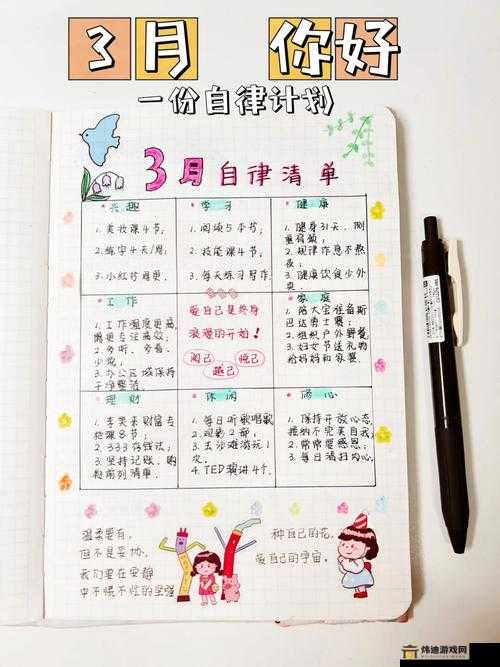 3月 你好
一份自律计划
3月自律清单
兴趣
1. 美妆课4节;
2. 练字4天/周;
3. 小红书周更.
学习
1. 阅读5本书;
2. 技能课4节;
3. 每天练习写作.
健康
1. 健身31天,侧
重肩颈;
2. 规律作息不熬
夜;
3. 健康饮食少外
卖.
工作
1. 工作强度更高,
需更专注高效;
2. 多听、多看、
少说;
3. 办公区域保持
干净整洁.
爱自己是终身
浪漫的开始!
阅己
悦己
越己
家庭
1. 陪大宝视
巴达勇士赛;
2. 组织户外野餐,
3. 妇女节送礼物
给妈妈和家婆.
理财
1. 李笑来财富专
栏课8节;
2. 333存钱法;
3. 坚持记账、购
物前列清单.
休闲
1. 每日听歌唱歌
2. 观影2部;
3. 去沙滩游玩1
次.
4. TED演讲4个.
修心
1. 保持开放心态,
接纳不完美自我;
2. 常常要感恩;
3. 每日清扫内心.
温柔要有,
但不是妥协,
我们要在安静
中不慌不忙的坚强
种自己的花,
爱自己的宇宙.
炜迪游戏网